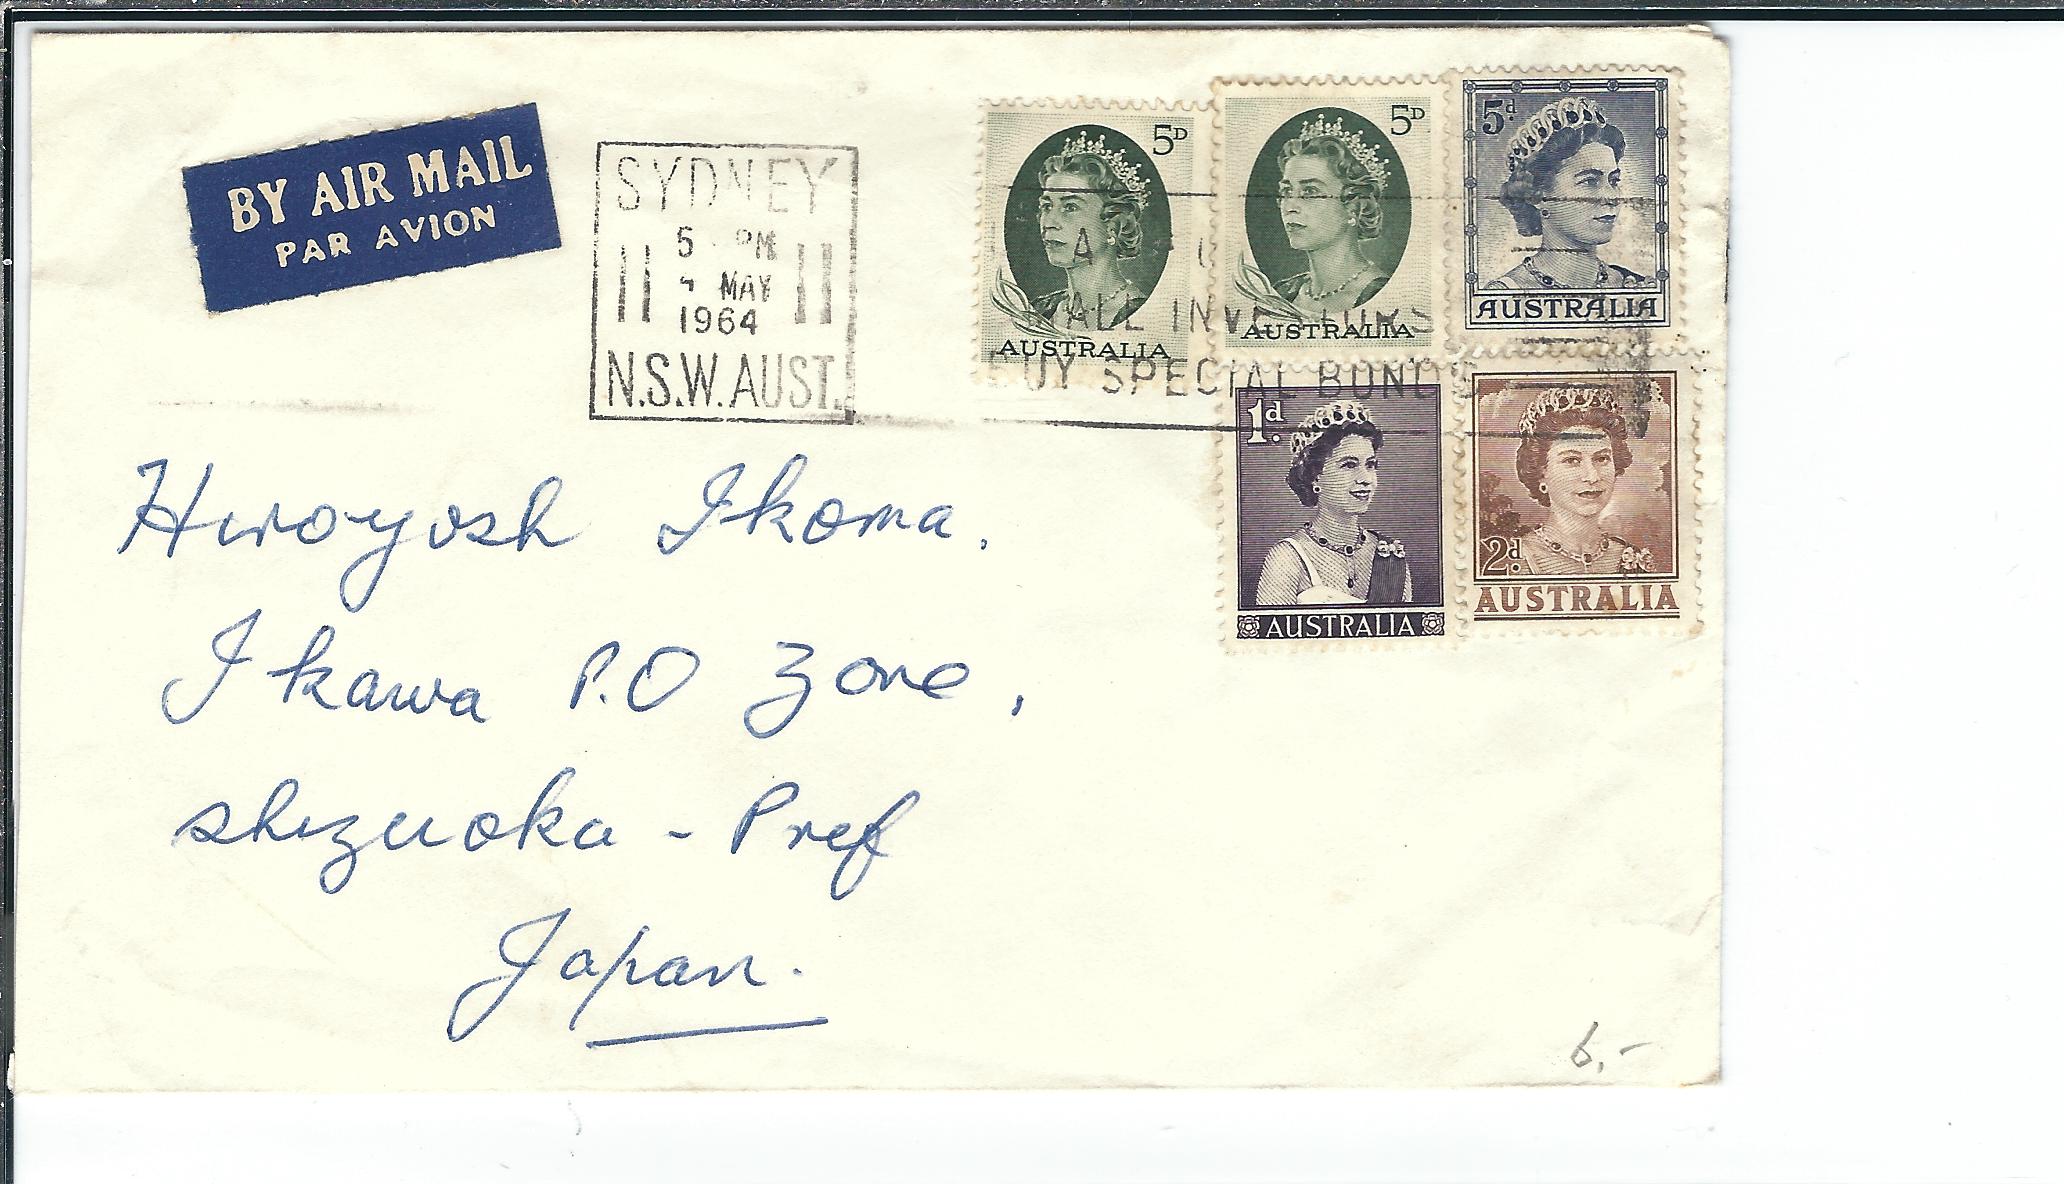 BY AIR MAIL
PAR AVION
SYDNEY
5 PM
MAY
1964
N.S.W. AUST.
5D
AUSTRALIA
5D
AUSTRALIA
5d
AUSTRALIA
BUY SPECIAL BONDS
1d.
AUSTRALIA
2d.
AUSTRALIA
Hiroyosh Ikoma.
Ikawa P.O Zone,
shizuoka - Pref
Japan.
6,-